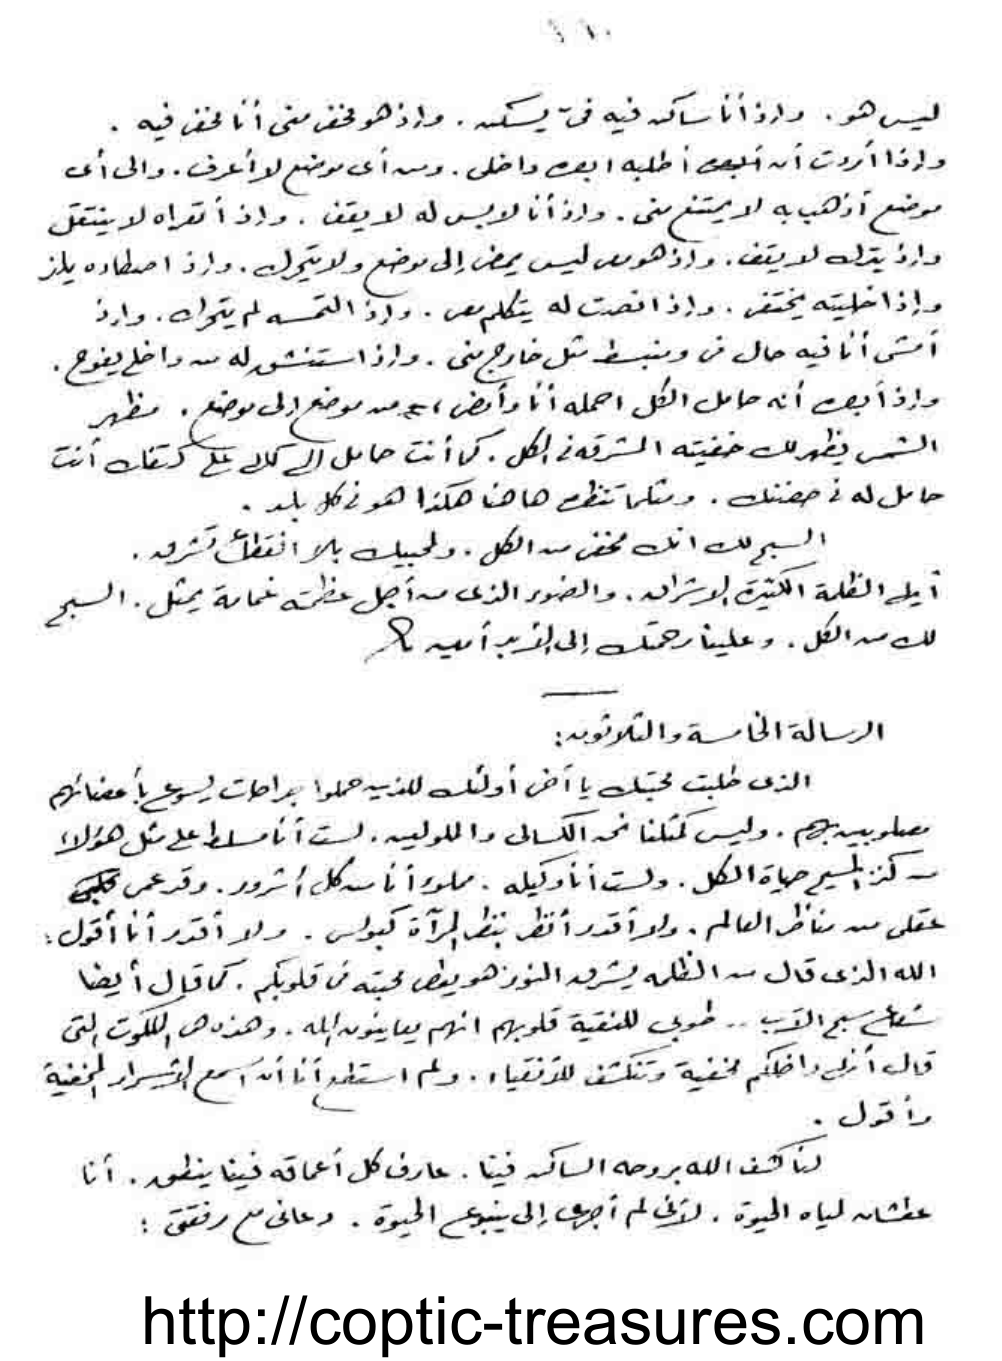 ليس هو . وإذ أنا ساكن فيه فيّ يسكن . وإذ هو مخفى منى أنا مخفى فيه .
وإذا أردت أن أبصره أطلبه أبصره داخلى . ومن أى موضع لا أعرف . والى أى
موضع أذهب به لا يمتنع منى . وإذ أنا لابس له لا يقف . وإذ أتعراه لا ينتقل
وإذ يترك لا يقف . وإذ هو معى ليس يمضى إلى موضع ولا يتحرك . وإذ اصطاده يلذ
وإذا خليته يختفى . وإذ انصت له يتكلم معى . وإذ التمسه لم يتحرك . وإذ
أمشى أنا فيه حال فى ومنبسط مثل خارج منى . وإذ استنشق له من داخلى يفوح .
وإذ أبصره أنه حامل الكل احمله أنا وأمضى من موضع إلى موضع . مظهر
الشمس يظهر لك خفيته المشرقة فى الكل . كما أنت حامل على كتفك أنت
حامل له فى حضنك . ومثلما تنظره هاهنا هكذا هو فى كل بلد .
السبح لك انك مخفى من الكل . ولمحبيك بلا انقطاع تشرق .
أيها الظلمة الكثيرة الاشراق . والضوء الذى من أجل عظمته غمامة يمثل . السبح
لك من الكل . وعلينا رحمتك إلى الأبد أمين
الرسالة الخامسة والثلاثون :
الذى طلبت محبتك يا أخى أولئك للذين حملوا جراحات يسوع بأعضائهم
مصلوبين بهم . وليس كمثلنا نحن الكسالى والملولين . لست أنا مسلط على مثل هؤلاء
من كنز المسيح حياة الكل . ولست أنا وكيله . مملوء أنا من كل أشرور . وقد عمى
عقلى من مناظر العالم . ولا أقدر أنظر بنظر المرآة كبولس . ولا أقدر أنا أقول :
الله الذى قال من الظلمه يشرق النور هو يعطى محبته فى قلوبكم . كما قال أيضا
شعاع سبح الآب .. طوبى للنقية قلوبهم انهم يعاينون الله . وهذه هى الملكوت التى
قال أنها داخلكم مخفية وتنكشف للأنقياء . ولم استطع أنا أن أسمع الأسرار المخفية
وأقول .
لنا كشف الله بروحه الساكن فينا . عارف كل أعماقه فينا ينطق . أنا
عطشان لمياه الحيوة . لأنى لم أجرى إلى ينبوع الحيوة . دعانى مع رفقتى :
http://coptic-treasures.com